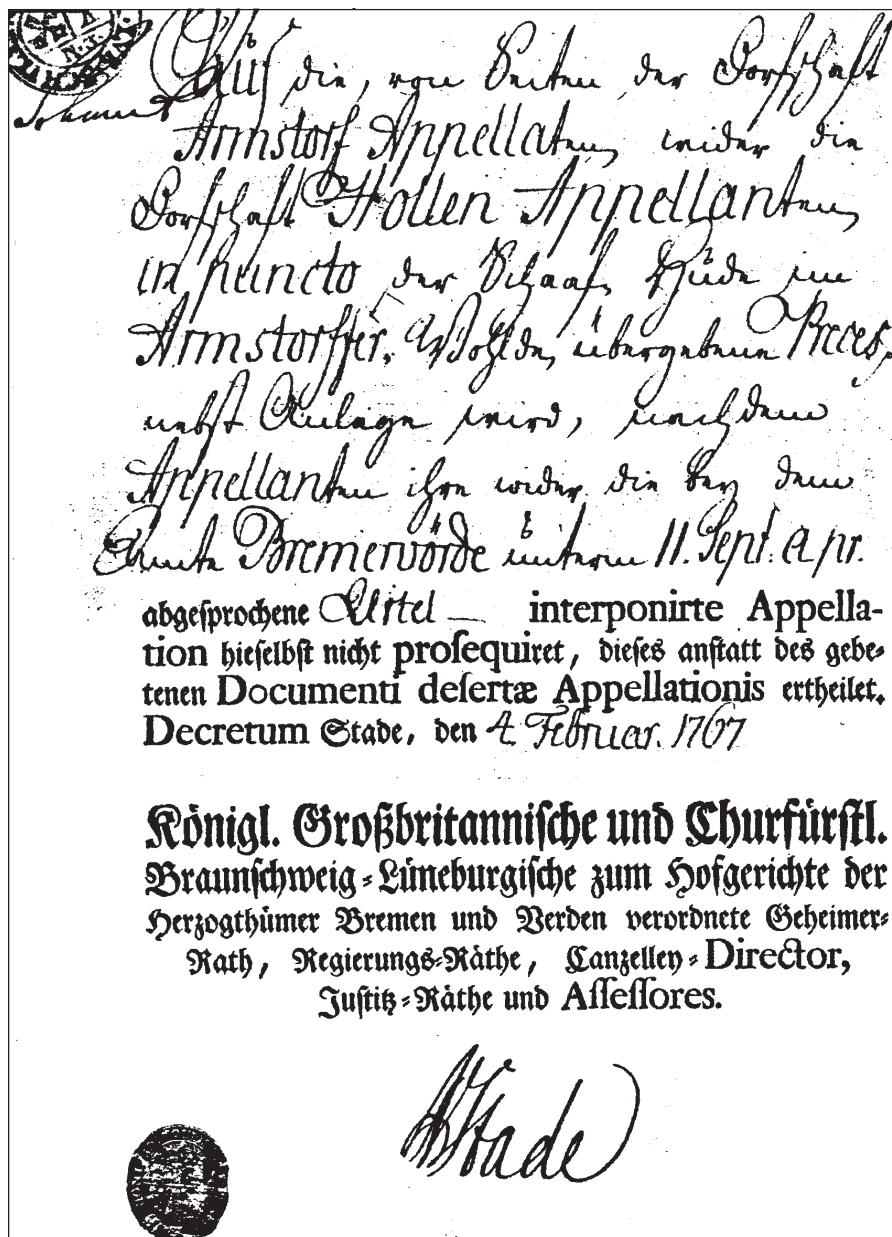 Auf die, von Seiten der Dorfschaft
Armstorf Appellaten, wider die
Dorfschaft Hollen Appellanten,
in puncto der Schaaf Hüde im
Armstorffer Wohlde, übergebene Preces,
nebst Anlage wird, nachdem
Appellanten ihre wider die bey dem
Amte Bremervörde unterm 11. Sept. a. pr.
abgesprochene Urtel — interponirte Appella-
tion hieselbst nicht prosequiret, dieses anstatt des gebe-
tenen Documenti desertæ Appellationis ertheilet.
Decretum Stade, den 4. Februar. 1767
Königl. Großbritannische und Churfürstl.
Braunschweig-Lüneburgische zum Hofgerichte der
Herzogthümer Bremen und Verden verordnete Geheimer-
Rath, Regierungs-Räthe, Canzelley-Director,
Justitz-Räthe und Assessores.
Stade